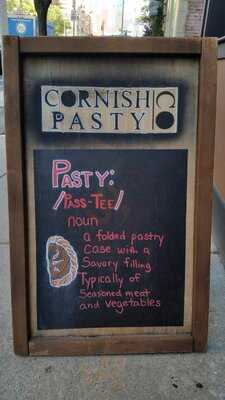 CORNISH CO
PASTY
PASTY:
/PASS-TEE/
noun
a folded pastry
case with a
Savory filling
Typically of
Seasoned meat
and vegetables